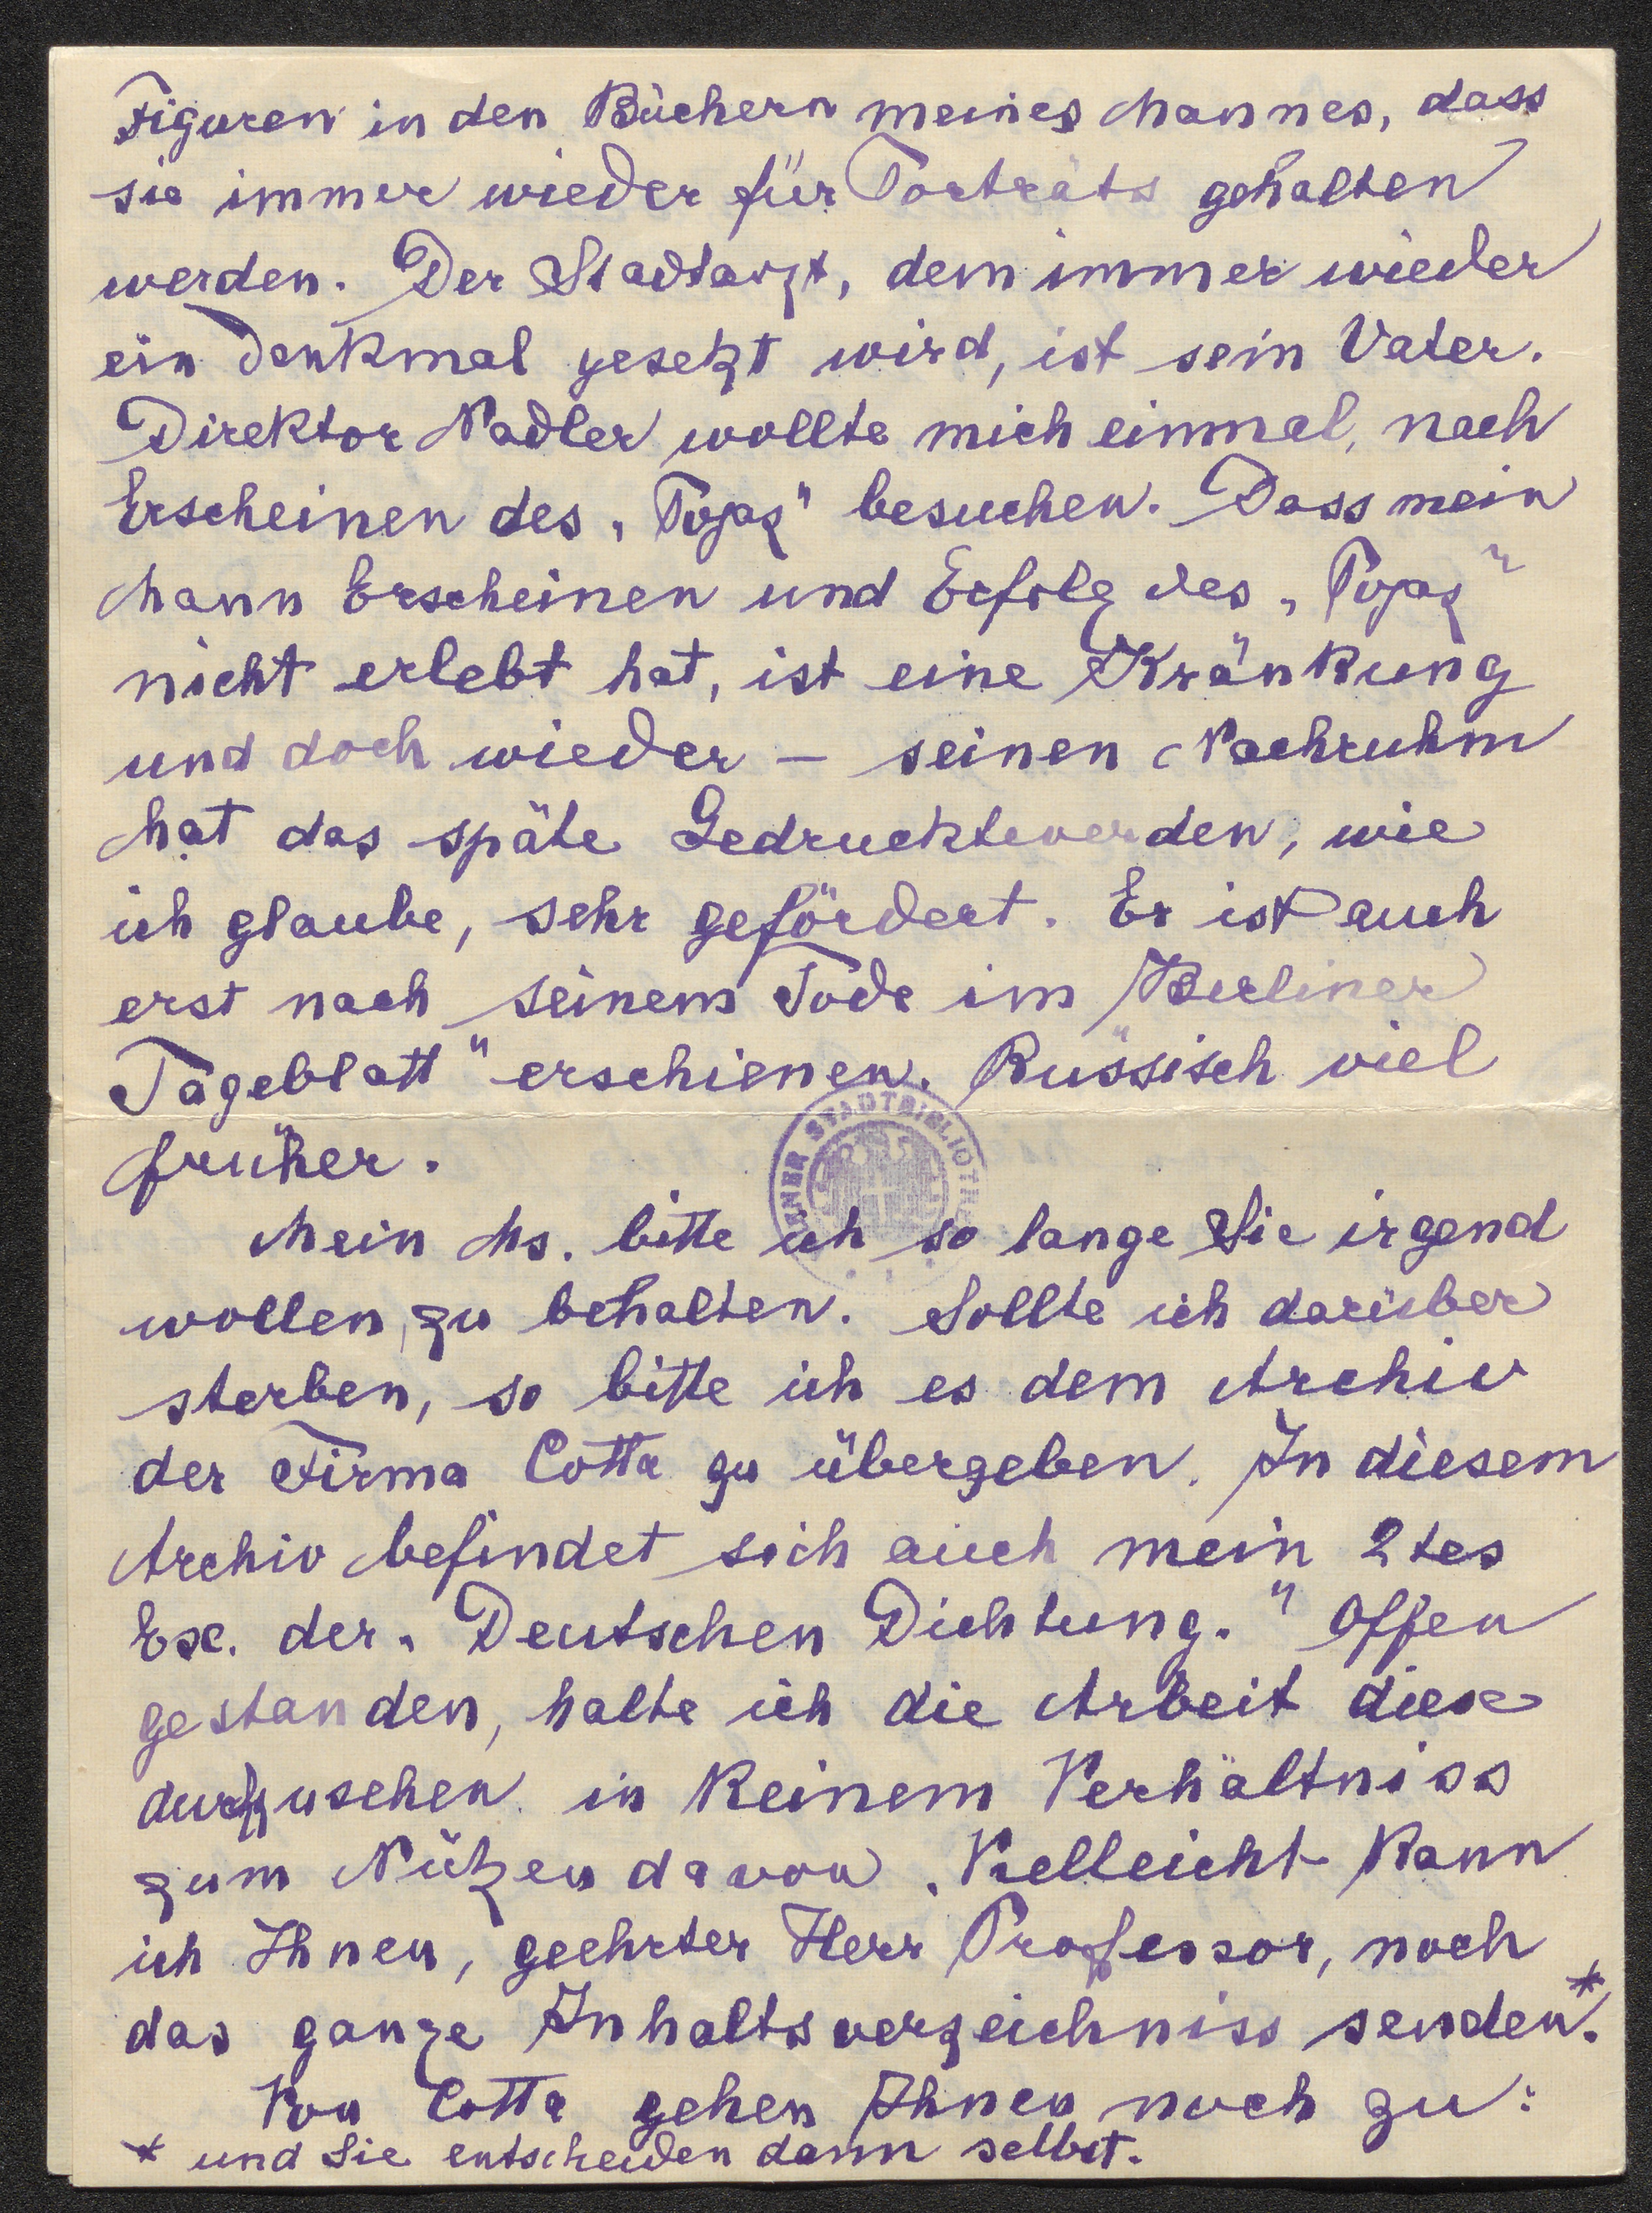 Figuren in den Büchern meines Mannes, dass
sie immer wieder für Porträts gehalten
werden. Der Stadtarzt, dem immer wieder
ein Denkmal gesetzt wird, ist sein Vater.
Direktor Nadler wollte mich einmal, nach
Erscheinen des „Pojaz" besuchen. Dass mein
Mann Erscheinen und Erfolg des „Pojaz"
nicht erlebt hat, ist eine Kränkung
und doch wieder – seinen Nachruhm
hat das späte Gedrucktwerden, wie
ich glaube, sehr gefördert. Er ist auch
erst nach seinem Tode im Berliner
Tageblatt" erschienen. Russisch viel
früher.
WIENER STADTBIBLIOTHEK
Mein Ms. bitte ich so lange Sie irgend
wollen, zu behalten. Sollte ich darüber
sterben, so bitte ich es dem Archiv
der Firma Cotta zu übergeben. In diesem
Archiv befindet sich auch mein 2tes
Exc. der „Deutschen Dichtung." Offen
gestanden, halte ich die Arbeit diese
durchzusehen in keinem Verhältniss
zum Nützen davon. Vielleicht kann
ich Ihnen, geehrter Herr Professor, noch
das ganze Inhaltsverzeichniss senden*.
Von Cotta gehen Ihnen noch zu:
* und Sie entscheiden dann selbst.